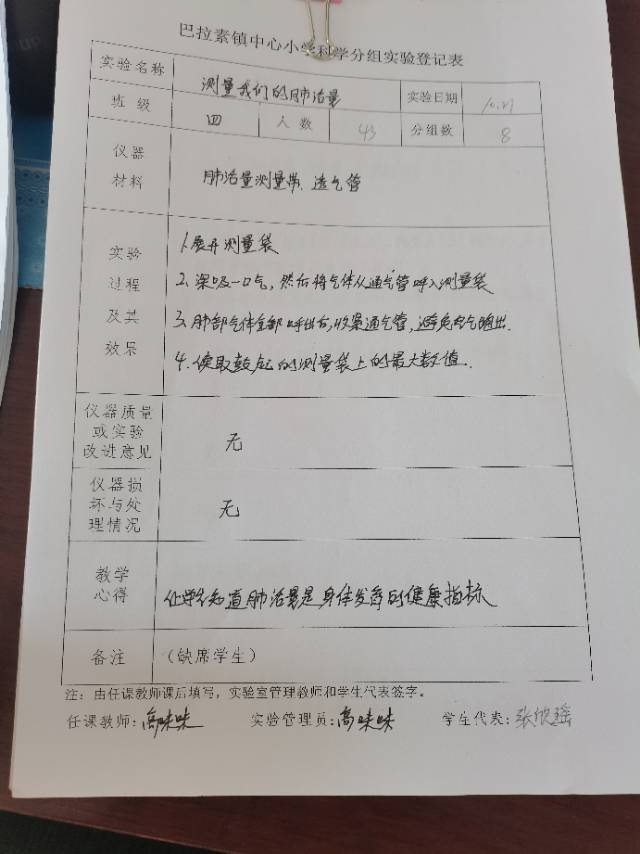 巴拉素镇中心小学科学分组实验登记表
实验名称 测量我们的肺活量 实验日期 10.21
班级 四 人数 43 分组数 8
仪器
材料
肺活量测量带、透气管
实验
过程
及其
效果
1.展开测量袋
2、深吸一口气,然后将气体从通气管呼入测量袋
3、肺部气体全部呼出后,收紧通气管,避免空气跑出.
4、读取鼓起的测量袋上的最大数值.
仪器质量
或实验
改进意见
无
仪器损
坏与处
理情况
无
教学
心得
让学生知道肺活量是身体发育的健康指标
备注 (缺席学生)
注:由任课教师课后填写,实验室管理教师和学生代表签字。
任课教师:高味味 实验管理员:高味味 学生代表:张欣瑶